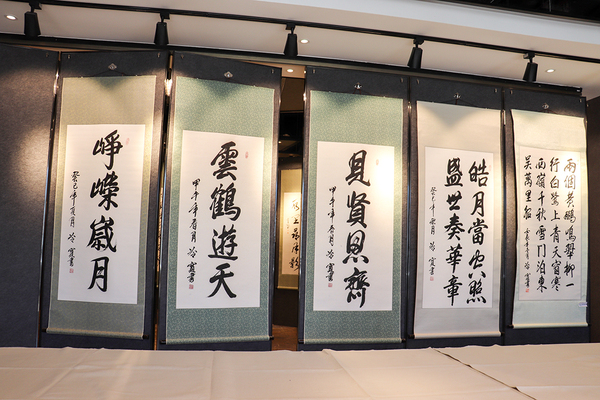 崢嶸歲月
癸巳年夏月 冷霞書
雲鶴遊天
甲午年春月 冷霞書
見賢思齊
甲午年春月 冷霞書
皓月當空照
盛世奏華章
癸巳年秋月 冷霞書
兩個黃鸝鳴翠柳一
行白鷺上青天窗含
西嶺千秋雪門泊東
吳萬里船